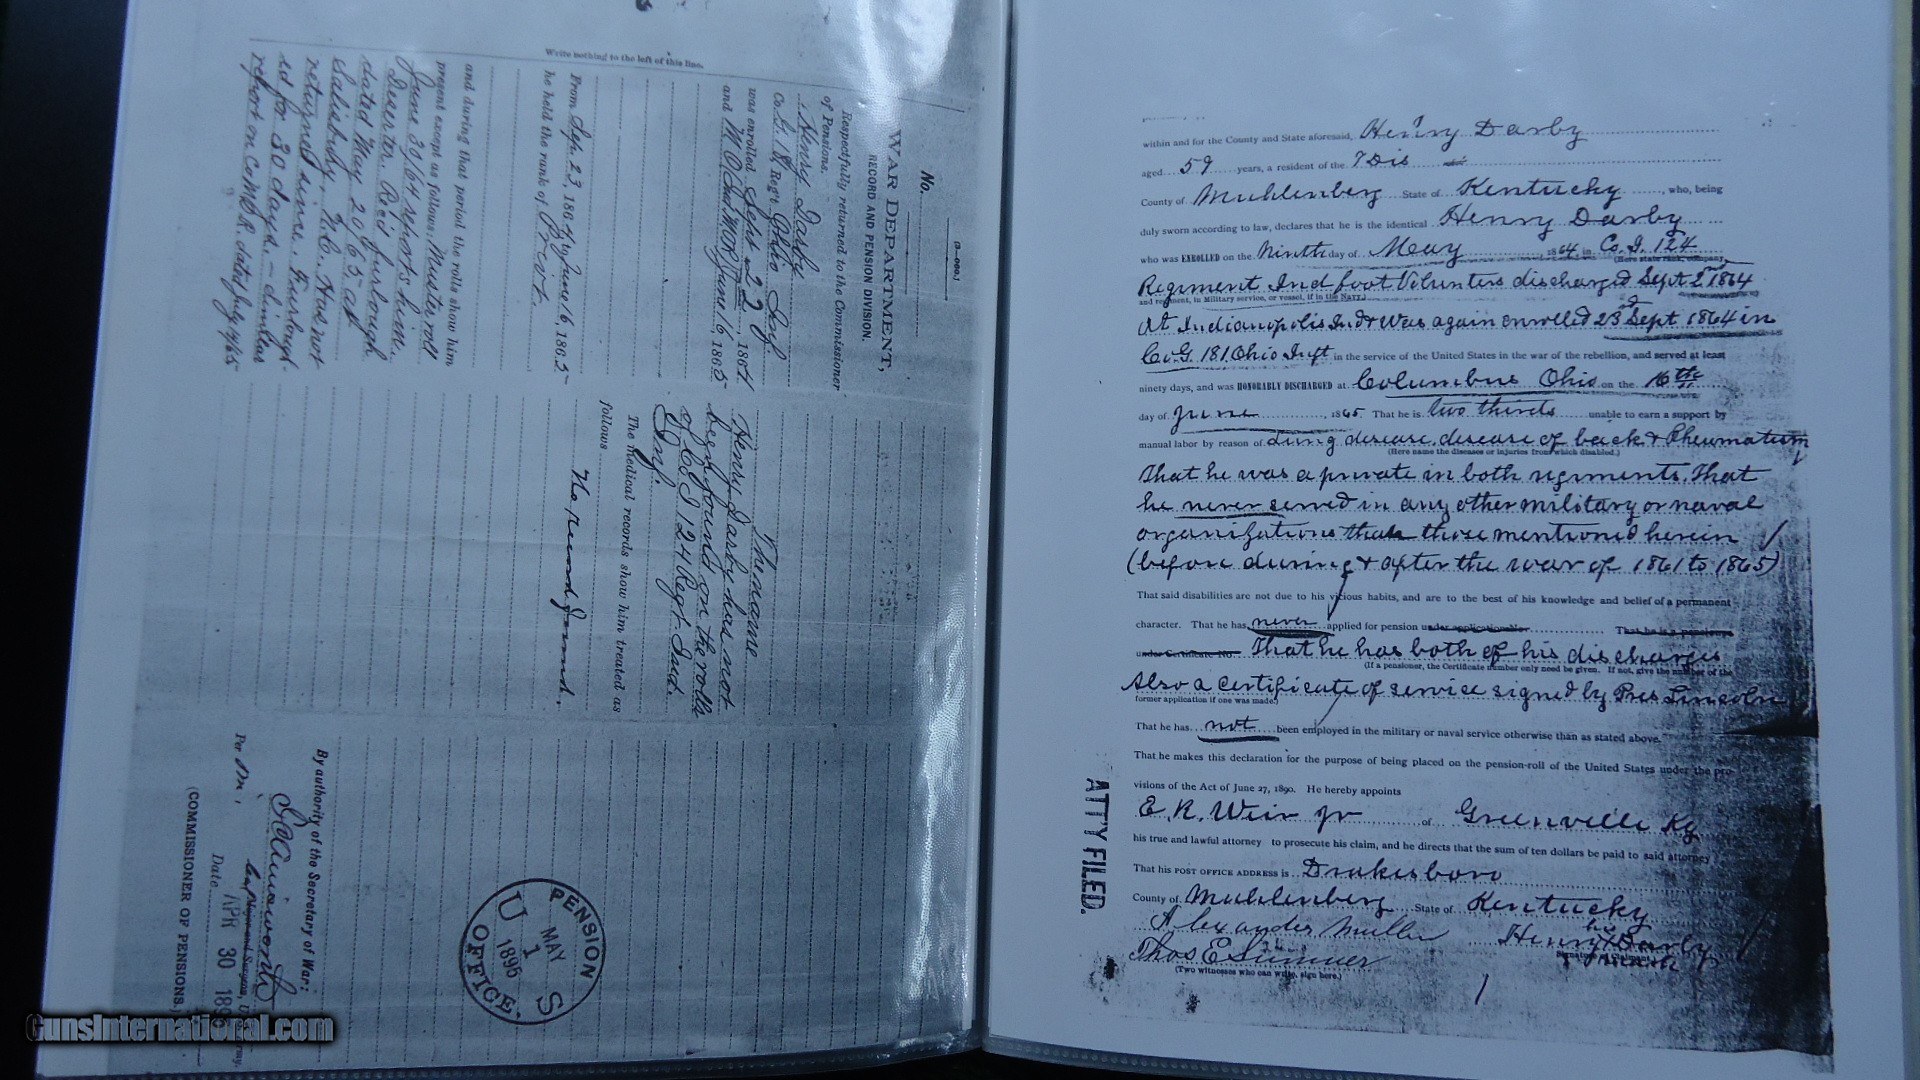 Write nothing to the left of this line.
(3-060.)
No.
WAR DEPARTMENT,
RECORD AND PENSION DIVISION.
Respectfully returned to the Commissioner
of Pensions.
Henry Darby
Co. G, 181 Reg't Ohio Inf.
was enrolled Sept 22, 1864,
and M.O. June 16, 1865
From Sep. 23, 1864, to June 16, 1865
he held the rank of Privt.
and during that period the rolls show him
present except as follows: Muster roll
June 30/64 reports him
Deserter. Rec'd furlough
dated May 20 65 at
Salisbury, N.C. Has not
returned since. Furlough
ed for 30 days, – similar
report on Co MOR. dated July 14/65
The name
Henry Darby has not
been found on the rolls
of Co I 124 Regt. Ind.
Inf.
The medical records show him treated as
follows
No record found.
By authority of the Secretary of War:
F. C. Ainsworth
Per M.
Date APR 30 189
(COMMISSIONER OF PENSIONS.)
U S PENSION OFFICE.
MAY
1
1896
within and for the County and State aforesaid, Henry Darby
aged 59 years, a resident of the 7 Dis
County of Muhlenberg State of Kentucky, who, being
duly sworn according to law, declares that he is the identical Henry Darby
who was ENROLLED on the ninth day of May 1864, in Co. I. 124
(Here state rank, company,
Regiment Ind foot Volunters discharged Sept 2d 1864
and regiment, in Military service, or vessel, if in the NAVY.)
At Indianopolis Ind & Was again enrolled 23d Sept 1864 in
Co. G. 181. Ohio Inft in the service of the United States in the war of the rebellion, and served at least
ninety days, and was HONORABLY DISCHARGED at Columbus Ohio on the 16th
day of June, 1865 That he is two thirds unable to earn a support by
manual labor by reason of Lung disease, disease of back & Rheumatism
(Here name the diseases or injuries from which disabled.)
That he was a private in both regiments. That
he never served in any other military or naval
organizations than those mentioned herein
(before during & after the war of 1861 to 1865)
That said disabilities are not due to his vicious habits, and are to the best of his knowledge and belief of a permanent
character. That he has never applied for pension under application No. That he is a pensioner
under Certificate No. That he has both of his discharges
(If a pensioner, the Certificate number only need be given. If not, give the number of the
Also a certificate of service signed by Pres Lincoln
former application if one was made.)
That he has not been employed in the military or naval service otherwise than as stated above.
That he makes this declaration for the purpose of being placed on the pension-roll of the United States under the pro-
visions of the Act of June 27, 1890. He hereby appoints
E. R. Weir Jr of Greenville Ky
his true and lawful attorney to prosecute his claim, and he directs that the sum of ten dollars be paid to said attorney
That his POST OFFICE ADDRESS is Drakesboro
County of Muhlenberg State of Kentucky
Alexander Muller Henry his X Darby
mark
Signature of Claimant
Thos E Sumner
(Two witnesses who can write, sign here.)
ATT'Y FILED.
GunsInternational.com